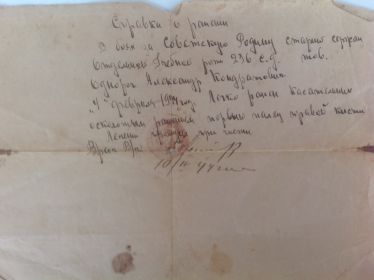 Справка о ранении
В боях за Советскую Родину старший сержан
Отделения Учебной роты 236 с.д. тов.
Однорог Александр Кондратович
"4" февраля 1944 год Легко ранен касательным
осколочным ранением первого палец правой кисти
Лечение проходил при части
Врач
10/II 44